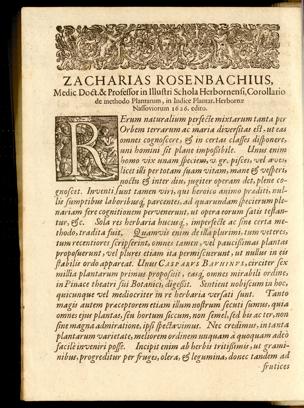 ZACHARIAS ROSENBACHIUS,
Medic. Doct. & Professor in Illustri Schola Herbornensi, Corollario
de methodo Plantarum, in Indice Plantar. Herbornæ
Nassoviorum 1626. edito.
RErum naturalium perfecte mixtarum tanta per
Orbem terrarum ac maria diversitas est, ut eas
omnes cognoscere, & in certas classes disponere,
uni homini sit plane impossibile. Unus enim
homo vix unam speciem, v. gr. pisces, vel aves,
licet illis per totam suam vitam, mane & vesperi,
noctu & interdiu, jugiter operam det, plene co-
gnoscet. Inventi sunt tamen viri, qui heroico animo præditi, nul-
lis sumptibus laboribusq, parcentes, ad quarundam specierum ple-
nariam fere cognitionem pervenerunt, ut opera eorum satis testan-
tur, &c. Sola res herbaria hucusq, imperfecte ac sine certa me-
thodo, tradita fuit. Quamvis enim de illa plurimi, tum veteres,
tum recentiores scripserint, omnes tamen, vel paucissimas plantas
proposuerunt, vel plures etiam ita permiscuerunt, ut nullus in eis
stabilis ordo appareat. Unus CASPARUS BAUHINUS, circiter sex
millia plantarum primus proposuit, easq, omnes mirabili ordine,
in Pinace theatri sui Botanici, digessit. Sentient nobiscum in hoc,
quicunque vel mediocriter in re herbaria versati sunt. Tanto
magis autem præceptorem etiam illum nostrum secuti sumus, quia
omnes ejus plantas, seu hortum siccum, non semel, sed bis ac ter, non
sine magna admiratione, ipsi spectavimus. Nec credimus, in tanta
plantarum varietate, meliorem ordinem unquam à quoquam adeò
facilè inveniri posse. Incipit enim ab herbis tritissimis, ut grami-
nibus, progreditur per fruges, olera, & legumina, donec tandem ad
frutices